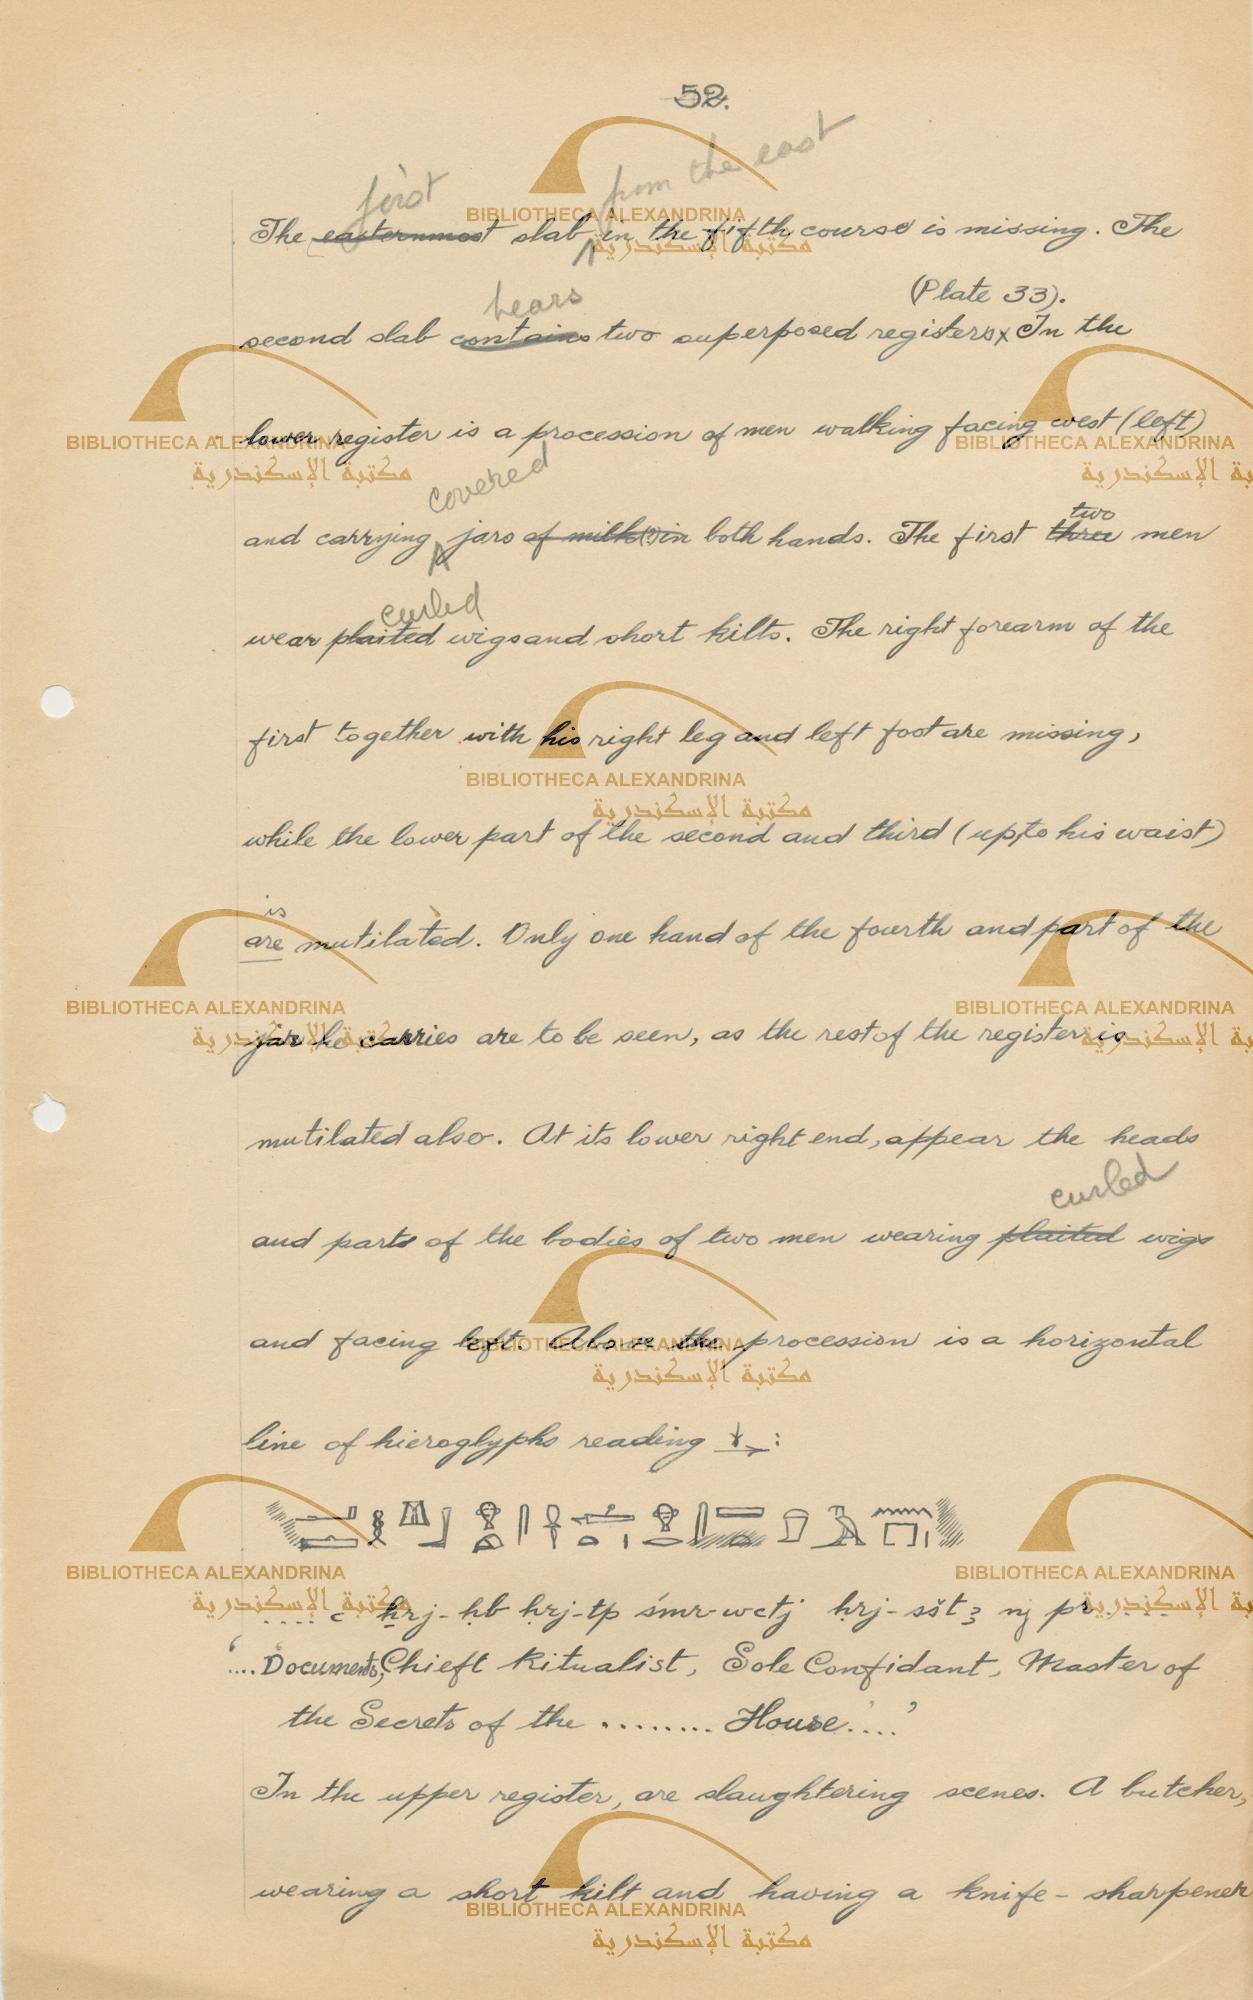 52.
first from the east
The easternmost slab in the fifth course is missing. The
bears (Plate 33).
second slab contains two superposed registers x In the
lower register is a procession of men walking facing west (left)
covered
two
and carrying jars of milk(?) in both hands. The first three men
curled
wear plaited wigs and short kilts. The right forearm of the
first together with his right leg and left foot are missing,
while the lower part of the second and third (up to his waist)
is
are mutilated. Only one hand of the fourth and part of the
jar he carries are to be seen, as the rest of the register is
mutilated also. At its lower right end, appear the heads
curled
and parts of the bodies of two men wearing plaited wigs
and facing left. Above the procession is a horizontal
line of hieroglyphs reading :
.... c ẖrj-ḥb ḥrj-tp śmr-wctj ḥrj-sšt3 nj pr....
'.... Documents, Chieft Ritualist, Sole Confidant, Master of
the Secrets of the ........ House ....'
In the upper register, are slaughtering scenes. A butcher,
wearing a short kilt and having a knife-sharpener
BIBLIOTHECA ALEXANDRINA
مكتبة الإسكندرية